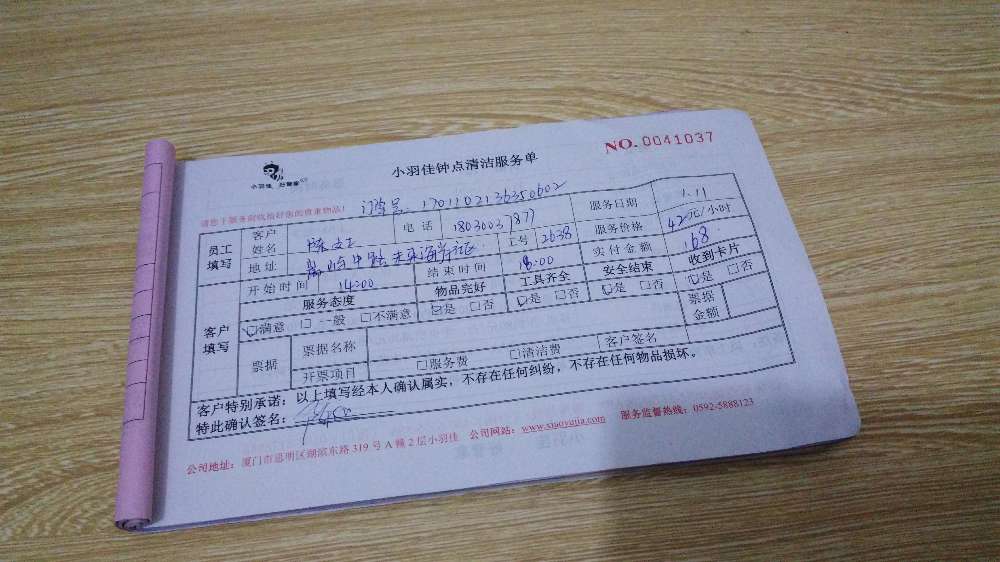 NO.0041037
小羽佳 好管家
小羽佳钟点清洁服务单
请您于服务前收拾好您的贵重物品!
订单号: 1701102136350602
员工填写 客户姓名 电话 18030037877 服务日期 1.11
地址 工号 2638 服务价格 42元/小时
开始时间 14:00 结束时间 18:00 实付金额 168
客户填写 服务态度 物品完好 工具齐全 安全结束 收到卡片
☑满意 □一般 □不满意 ☑是 □否 ☑是 □否 ☑是 □否 ☑是 □否
票据 票据名称 票据金额
开票项目 □服务费 □清洁费 客户签名
客户特别承诺:以上填写经本人确认属实,不存在任何纠纷,不存在任何物品损坏。
特此确认签名:
公司地址:厦门市思明区湖滨东路319号A幢2层小羽佳 公司网站:www.xiaoyujia.com 服务监督热线:0592-5888123